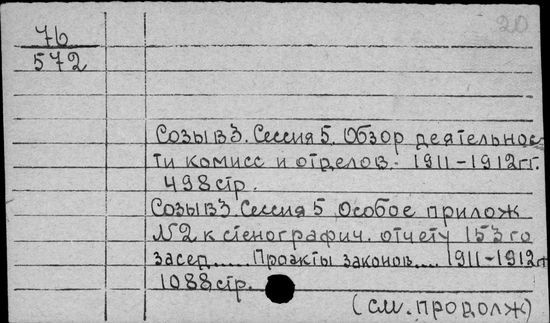 20
76
572
Созыв 3. Сессия 5. Обзор деятельнос-
ти комисс и отделов. 1911-1912 гг.
498 стр.
Созыв 3 Сессия 5 Особое прилож
№2 к стенографич. отчету 153 го
засед..... Проэкты законов.... 1911-1912 г
1088 стр.
(см. продолж)